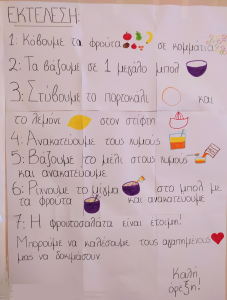 ΕΚΤΕΛΕΣΗ:
1: Κόβουμε τα φρούτα σε κομμάτια
2: Τα βάζουμε σε 1 μεγάλο μπολ
3: Στύβουμε το πορτοκάλι και
το λεμόνι στον στίφτη
4: Ανακατεύουμε τους χυμούς
5: Βάζουμε το μέλι στους χυμούς
και ανακατεύουμε
6: Ρίχνουμε το μίγμα στο μπολ με
τα φρούτα και ανακατεύουμε
7: Η φρουτοσαλάτα είναι έτοιμη!
Μπορούμε να καλέσουμε τους αγαπημένους
μας να δοκιμάσουν
Καλή
όρεξη!